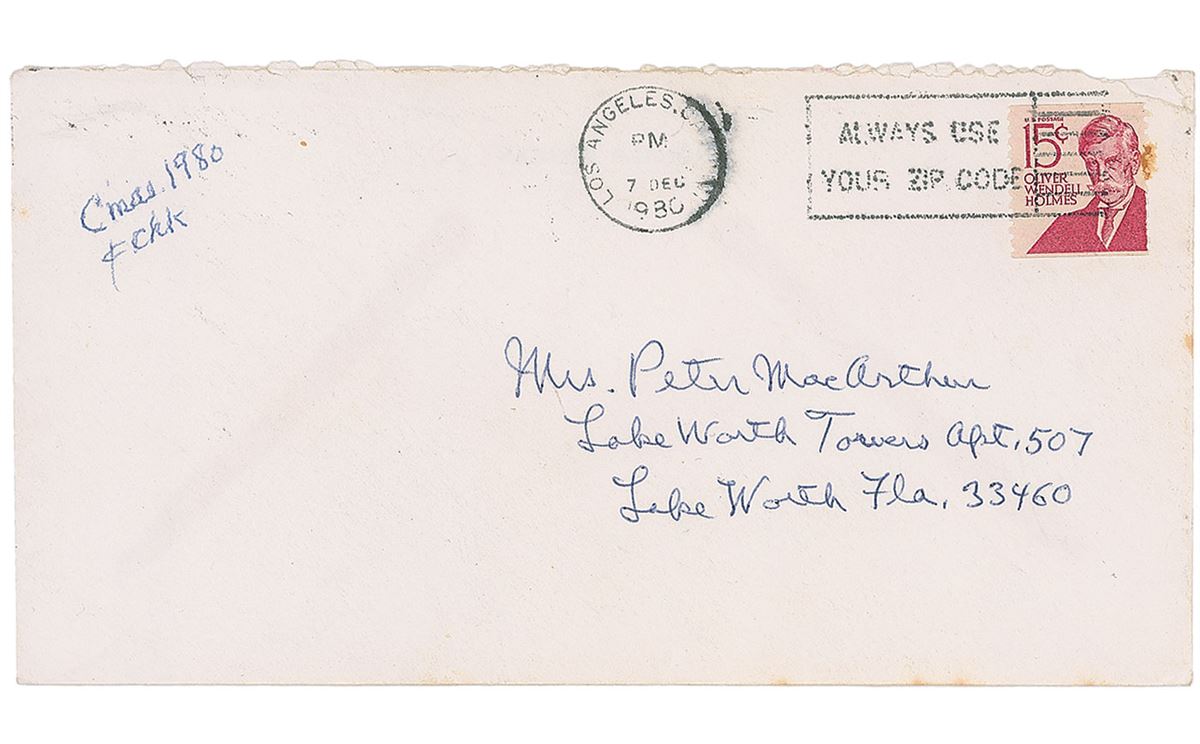 C'mas. 1980
LOS ANGELES, C
PM
7 DEC
1980
ALWAYS USE
YOUR ZIP CODE
U.S. POSTAGE
15¢
OLIVER
WENDELL
HOLMES
Mrs. Peter MacArthur
Lake Worth Towers Apt. 507
Lake Worth Fla. 33460